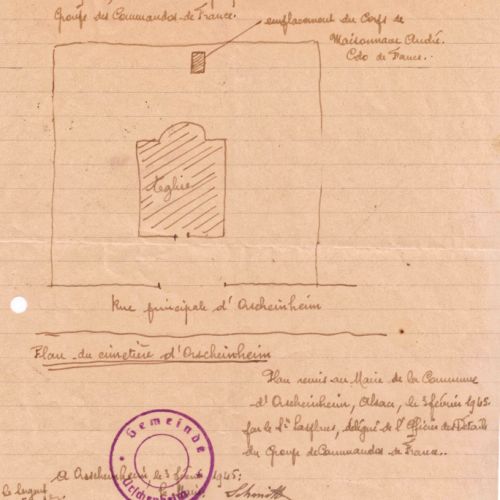 Groupe des Commandos de France.
emplacement du Corps de
Maisonnave André.
Cdo de France.
Eglise
Rue principale d'Orscheinheim
Plan du cimetière d'Orscheinheim
Plan remis au Maire de la Commune
d'Orscheinheim, Alsace, le 3 février 1945.
par le Lt, délégué de l'Officier des Détails
du Groupe de Commandos de France.
Gemeinde
A Orscheinheim le 3 février 1945:
Le Sergent